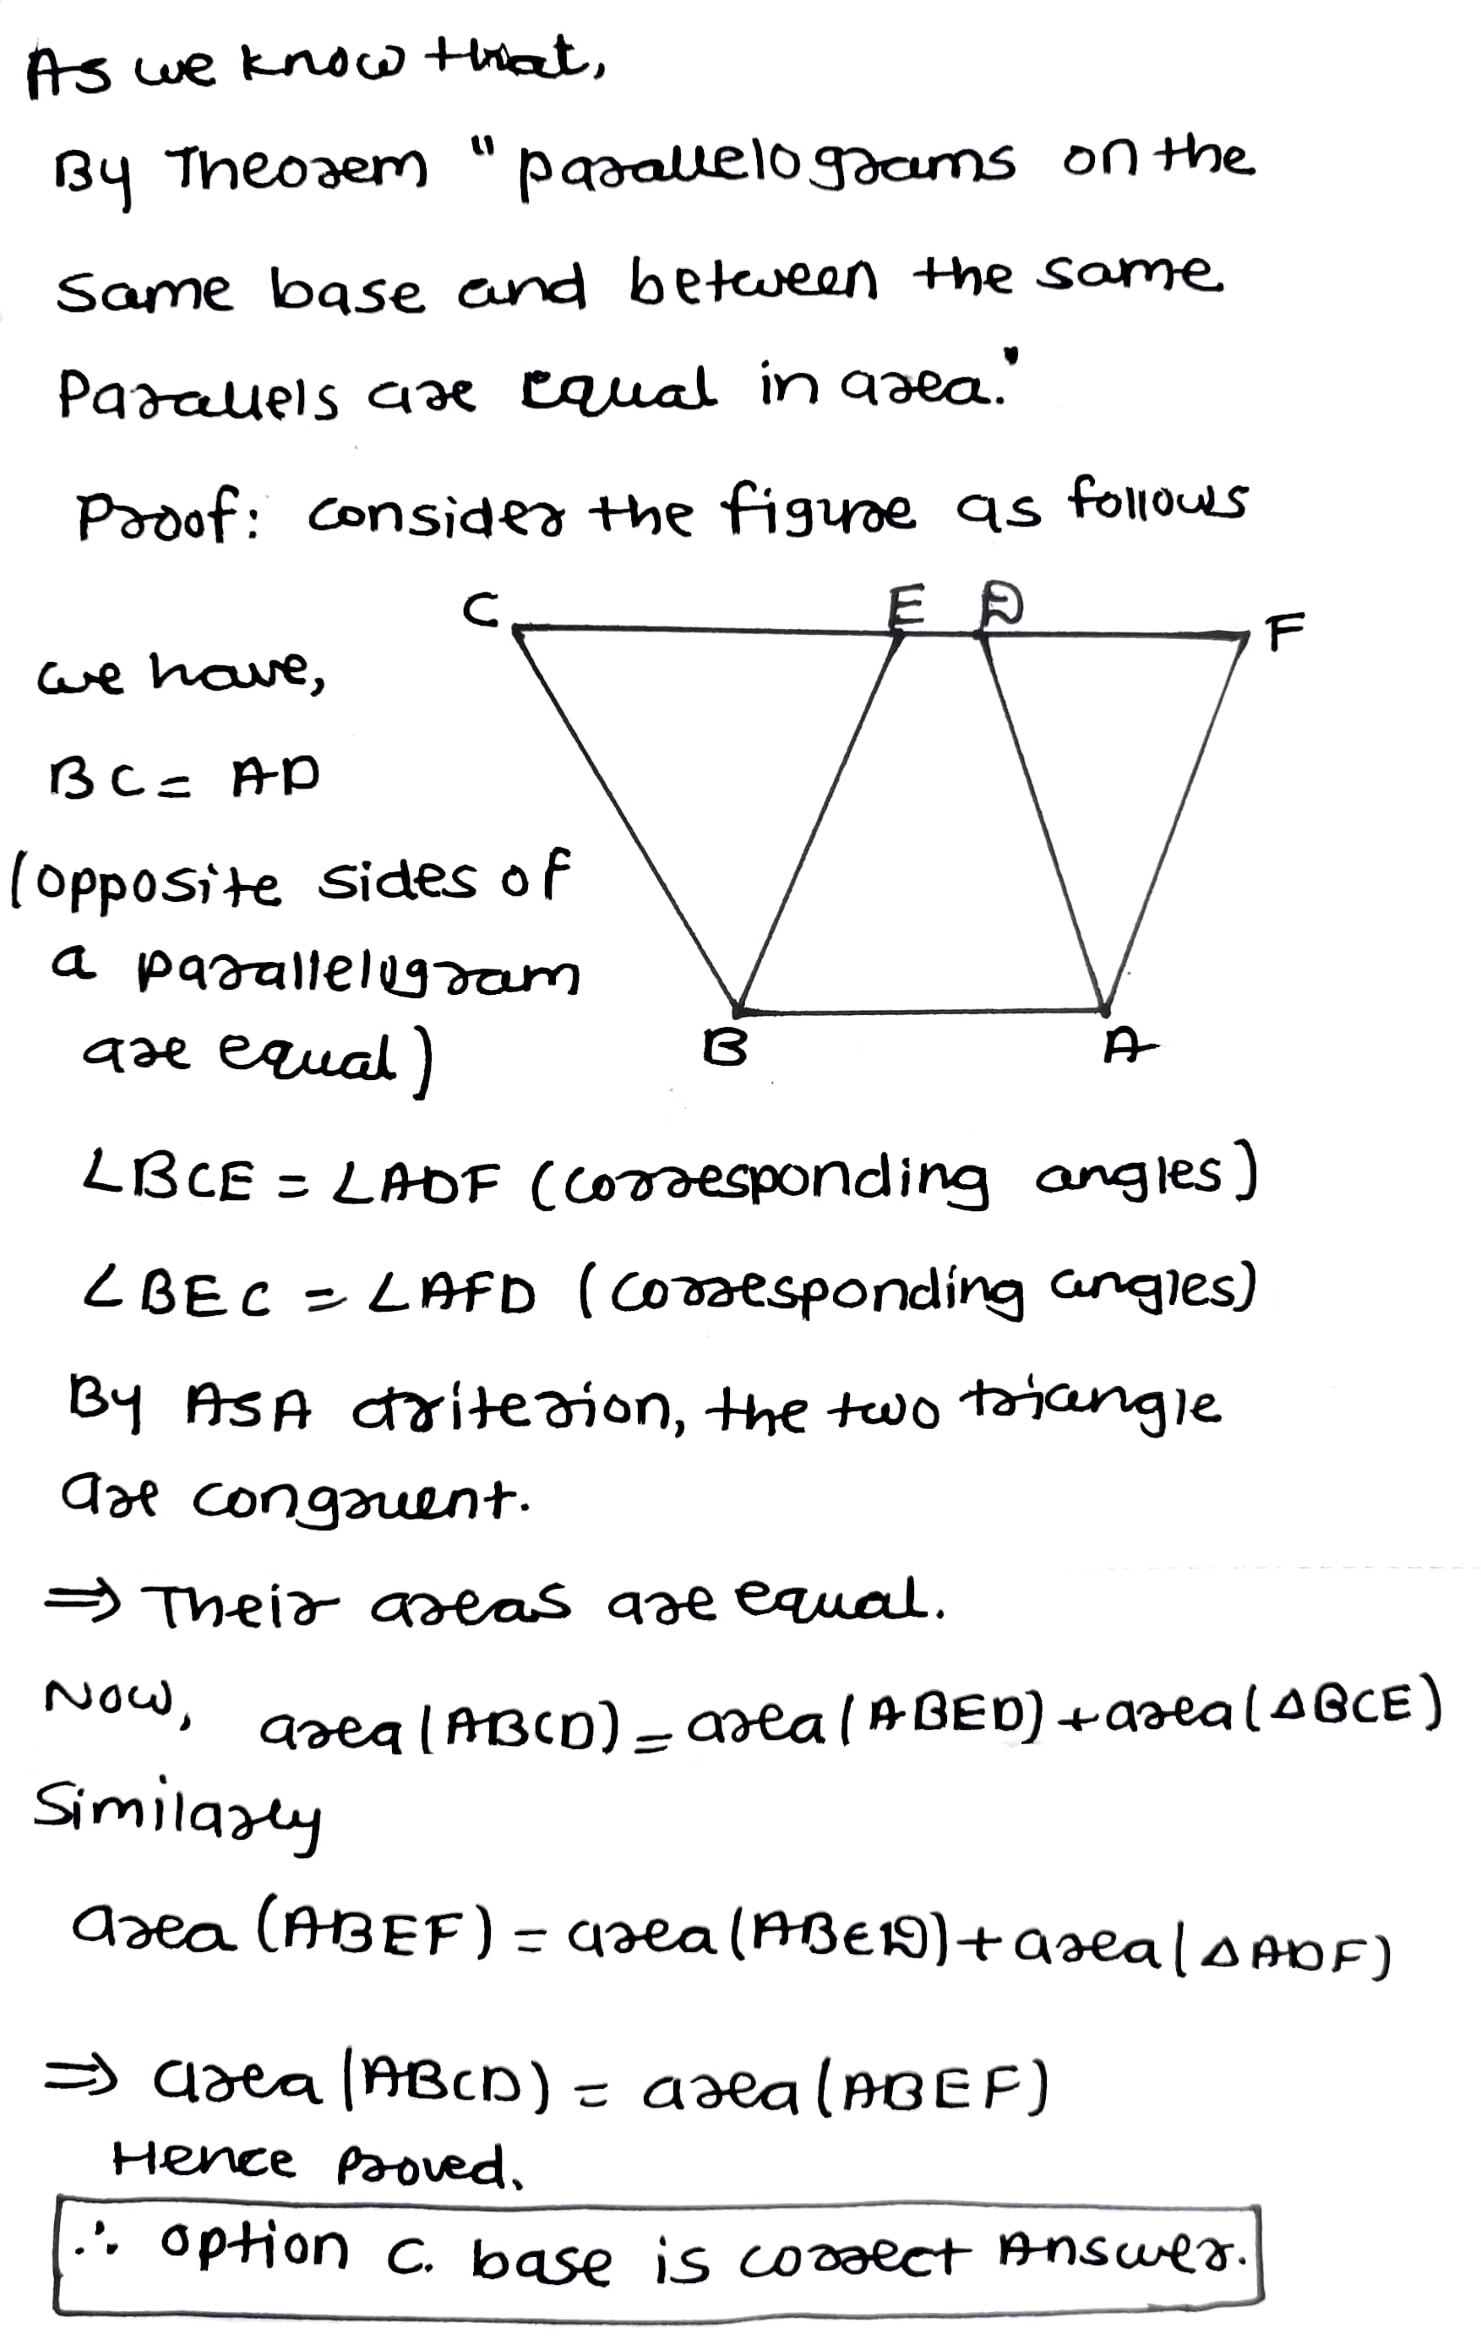 As we know that,
By Theorem "parallelograms on the
same base and between the same
Parallels are equal in area."
Proof: consider the figure as follows
C E D F
we have,
BC = AD
(opposite sides of
a parallelogram
are equal)
B A
∠BCE = ∠ADF (corresponding angles)
∠BEC = ∠AFD (corresponding angles)
By ASA criterion, the two triangle
are congruent.
⇒ Their areas are equal.
Now, area (ABCD) = area (ABED) + area (ΔBCE)
Similarly
area (ABEF) = area (ABED) + area (ΔADF)
⇒ area (ABCD) = area (ABEF)
Hence proved.
∴ option C. base is correct Answer.